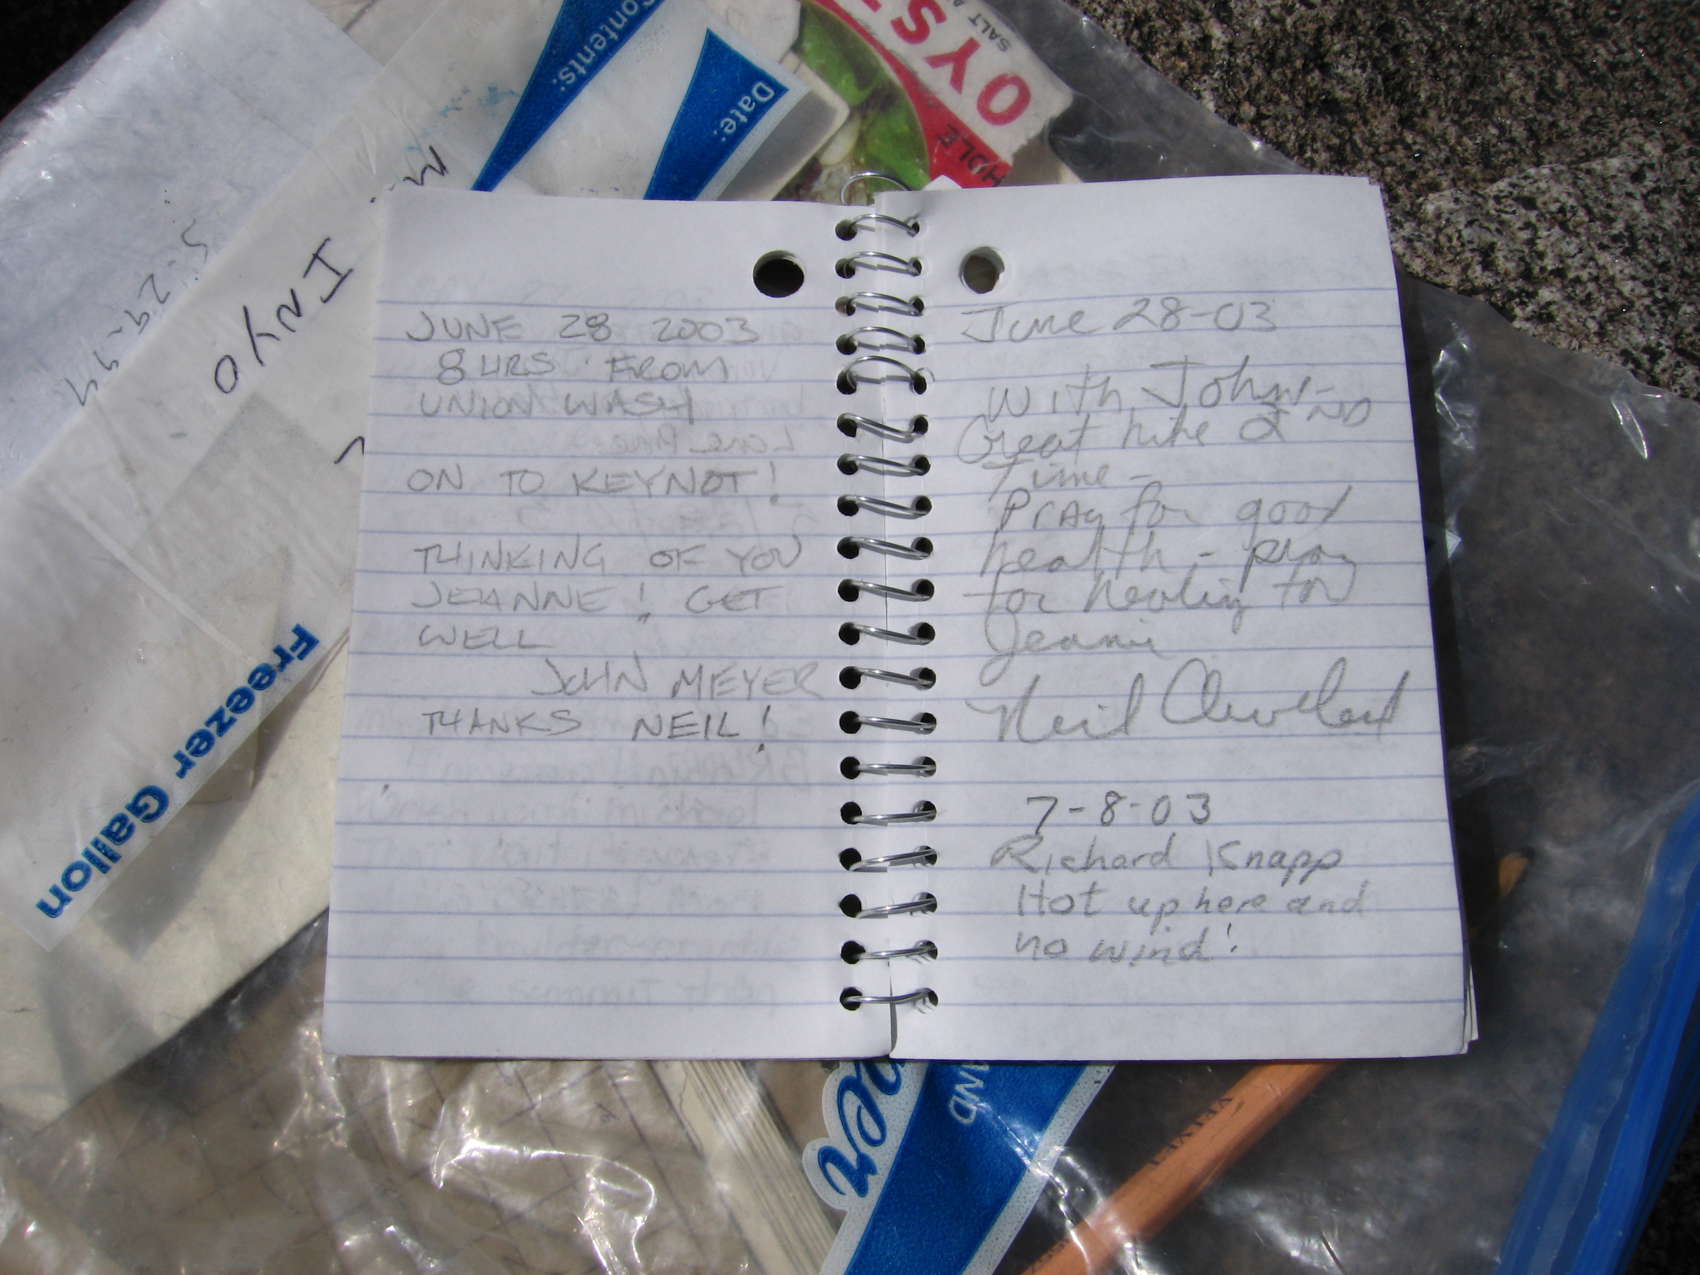 Contents:
Date:
OYST
SALT A
HOLE
INYO
5-29-94
Freezer Gallon
JUNE 28 2003
8 HRS FROM
UNION WASH
ON TO KEYNOT!
THINKING OF YOU
JEANNE! GET
WELL
JOHN MEYER
THANKS NEIL!
June 28-03
With John-
Great hike AND
Time-
Pray for good
health - pray
for healing for
Jeannie
Neil Cleveland
7-8-03
Richard Knapp
Hot up here and
no wind!